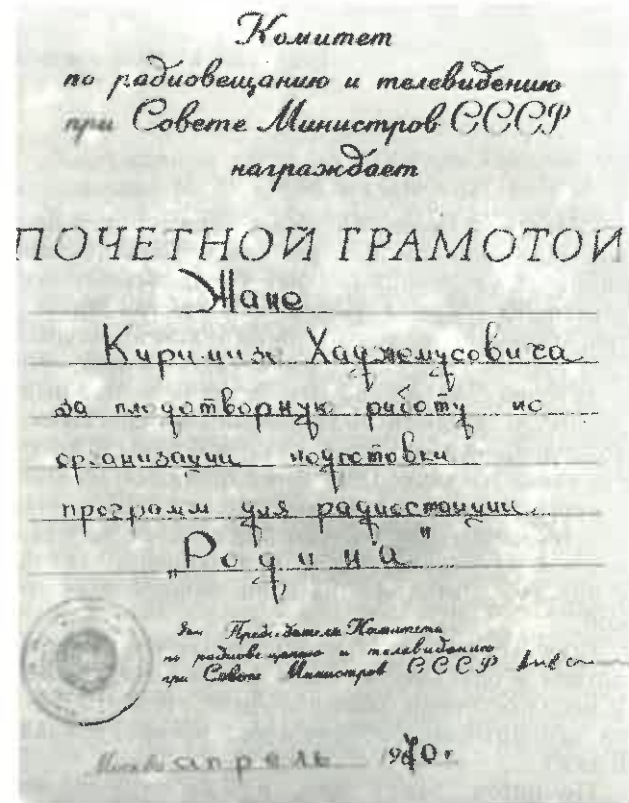 Комитет
по радиовещанию и телевидению
при Совете Министров СССР
награждает
ПОЧЕТНОЙ ГРАМОТОЙ
Жане
Киримизе Хаджемусовича
за плодотворную работу по
организации подготовки
программ для радиостанции
"Родина"
Зам Председателя Комитета
по радиовещанию и телевидению
при Совете Министров СССР
Москва апрель 1970 г